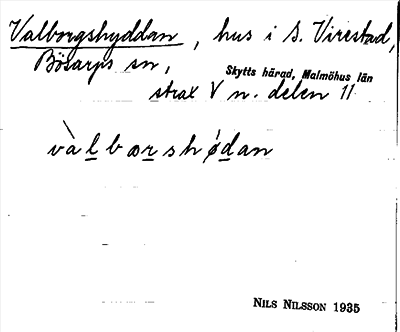 Valborgshyddan, hus i S. Virestad,
Bösarps sn, Skytts härad, Malmöhus län
strax V n. delen 11
vàlbørshødan
NILS NILSSON 1935